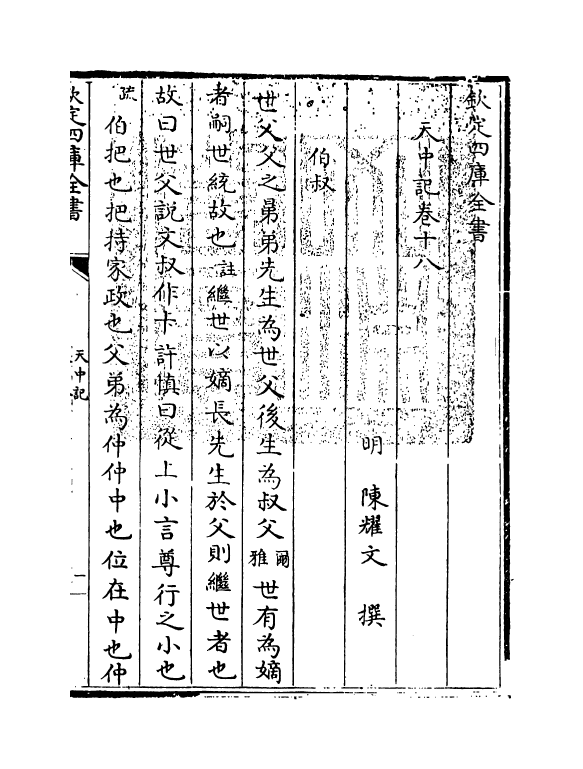 欽定四庫全書
天中記卷十八
明 陳耀文 撰
伯叔
世父父之晜弟先生為世父後生為叔父爾雅世有為嫡
者嗣世統故也註繼世以嫡長先生於父則繼世者也
故曰世父說文叔作尗許慎曰從上小言尊行之小也
疏伯把也把持家政也父弟為仲仲中也位在中也仲
欽定四庫全書
天中記